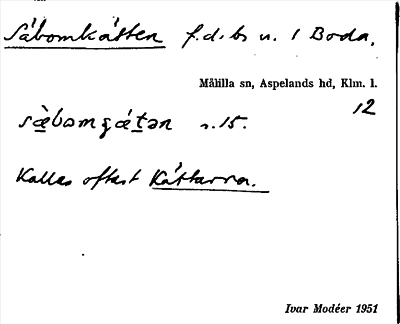 Såbomkåtten f.d. bs u. 1 Boda,
Målilla sn, Aspelands hd, Klm. l.
12
s. 15.
Kallas oftast Kåttarna.
Ivar Modéer 1951